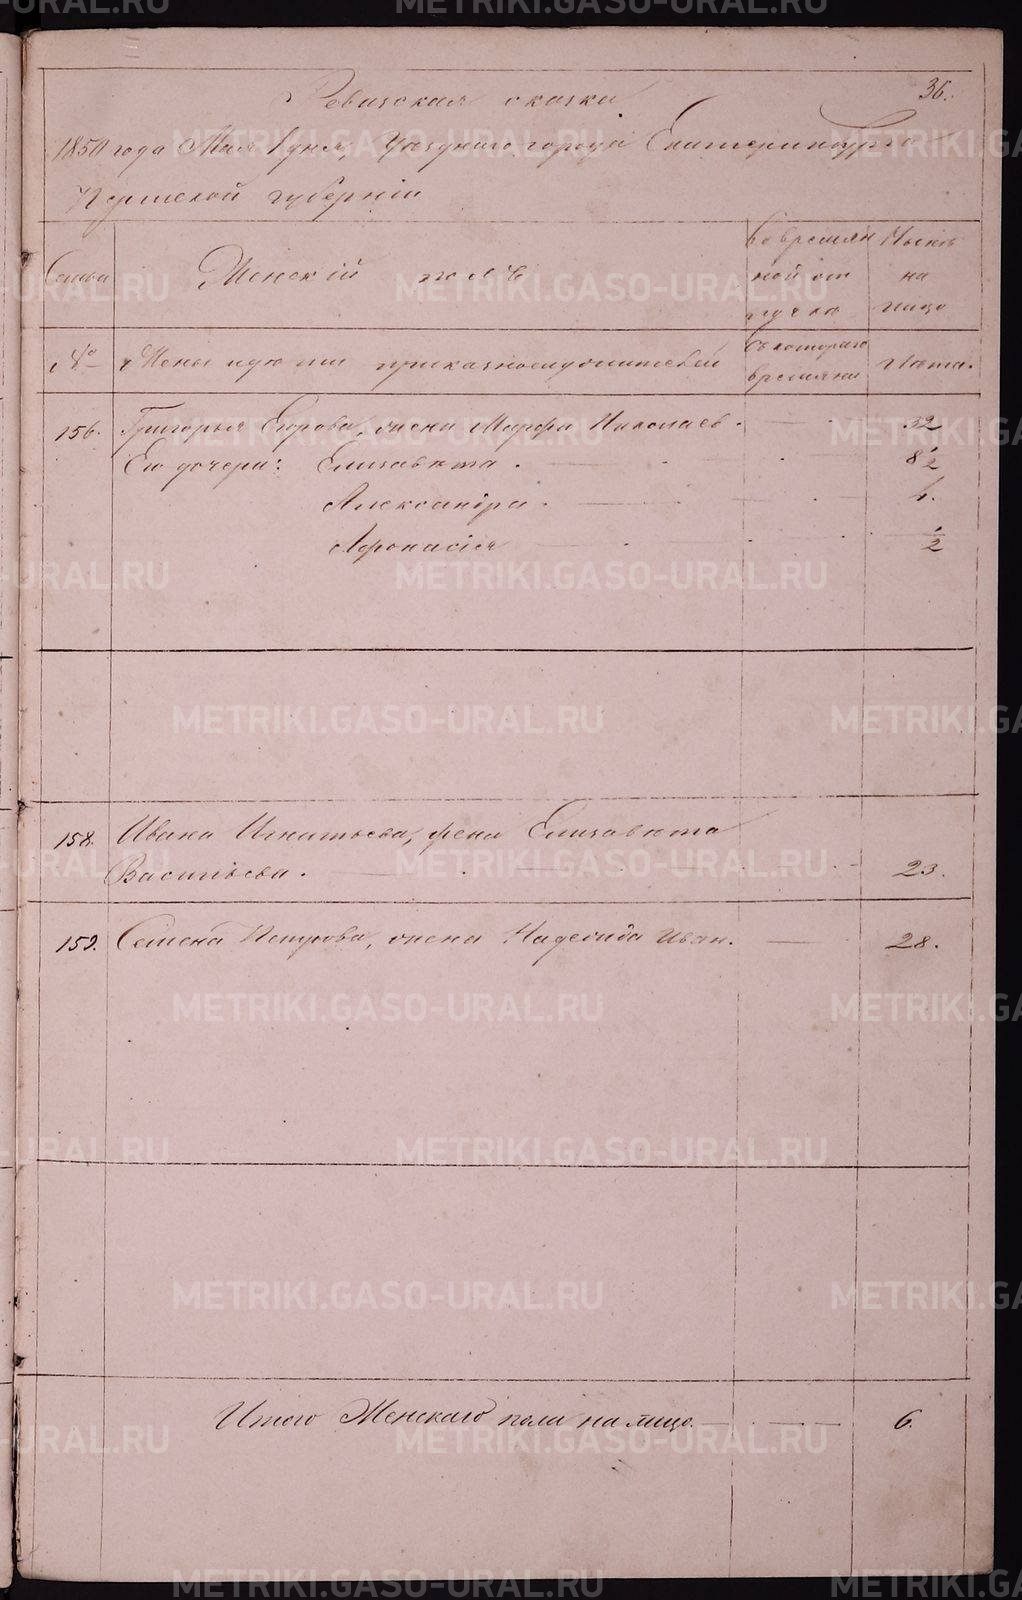 36.
Ревизская сказка
1850 года Мая 1 дня, Уезднаго города Екатеринбурга
Пермской губерніи
Семьи
Женскій полъ
Во времян
ной от
лучке
Ныне
на
лицо
№
Жены и дочери
Съ котораго
времяни
Лета.
156.
Григорья Егорова, жена Марфа Николаев.
32
Его дочери: Елизавета.
8½
Александра.
6.
Афонасія
½
158.
Ивана Игнатьева, жена Елизавета
Васильева.
23.
159.
Семена Петрова, жена Надежда Иван.
28.
Итого Женскаго пола на лицо.
6.
METRIKI.GASO-URAL.RU